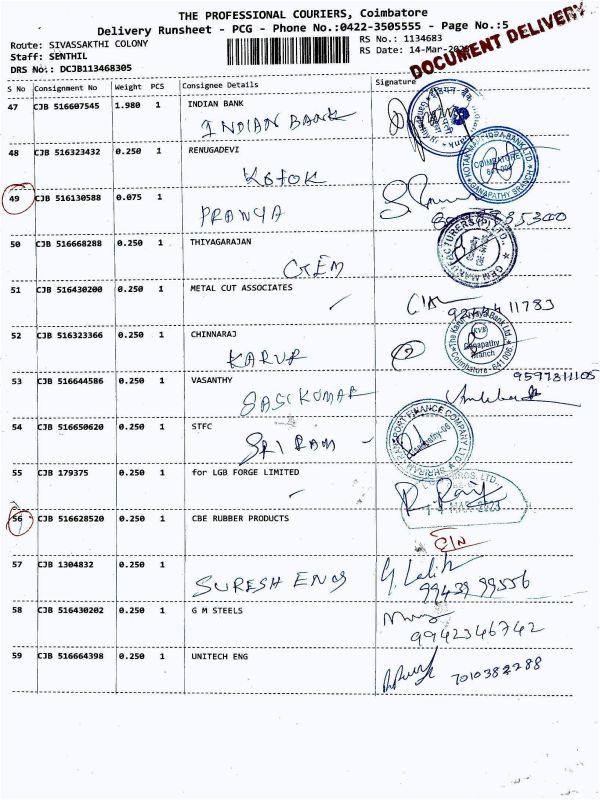 THE PROFESSIONAL COURIERS, Coimbatore
Delivery Runsheet - PCG - Phone No.:0422-3505555 - Page No.:5
Route: SIVASSAKTHI COLONY RS No.: 1134683
Staff: SENTHIL RS Date: 14-Mar-2023
DRS No.: DCJB113468305
DOCUMENT DELIVERY
S No Consignment No Weight PCS Consignee Details Signature
47 CJB 516607545 1.980 1 INDIAN BANK
INDIAN BANK
48 CJB 516323432 0.250 1 RENUGADEVI
KOTAK
COIMBATORE
GANAPATHY BRANCH
49 CJB 516130588 0.075 1
PRANYA
50 CJB 516668288 0.250 1 THIYAGARAJAN
GEM
51 CJB 516430200 0.250 1 METAL CUT ASSOCIATES
52 CJB 516323366 0.250 1 CHINNARAJ
KARUR
The Karur Vysya Bank Ltd.
KVB
Ganapathy
Branch
Coimbatore - 641 006
53 CJB 516644586 0.250 1 VASANTHY 9597811105
SASIKUMAR
54 CJB 516650620 0.250 1 STFC
SRI RAM
55 CJB 179375 0.250 1 for LGB FORGE LIMITED
56 CJB 516628520 0.250 1 CBE RUBBER PRODUCTS
57 CJB 1304832 0.250 1
SURESH ENG 99439 99556
58 CJB 516430202 0.250 1 G M STEELS
9942346742
59 CJB 516664398 0.250 1 UNITECH ENG
7010382288